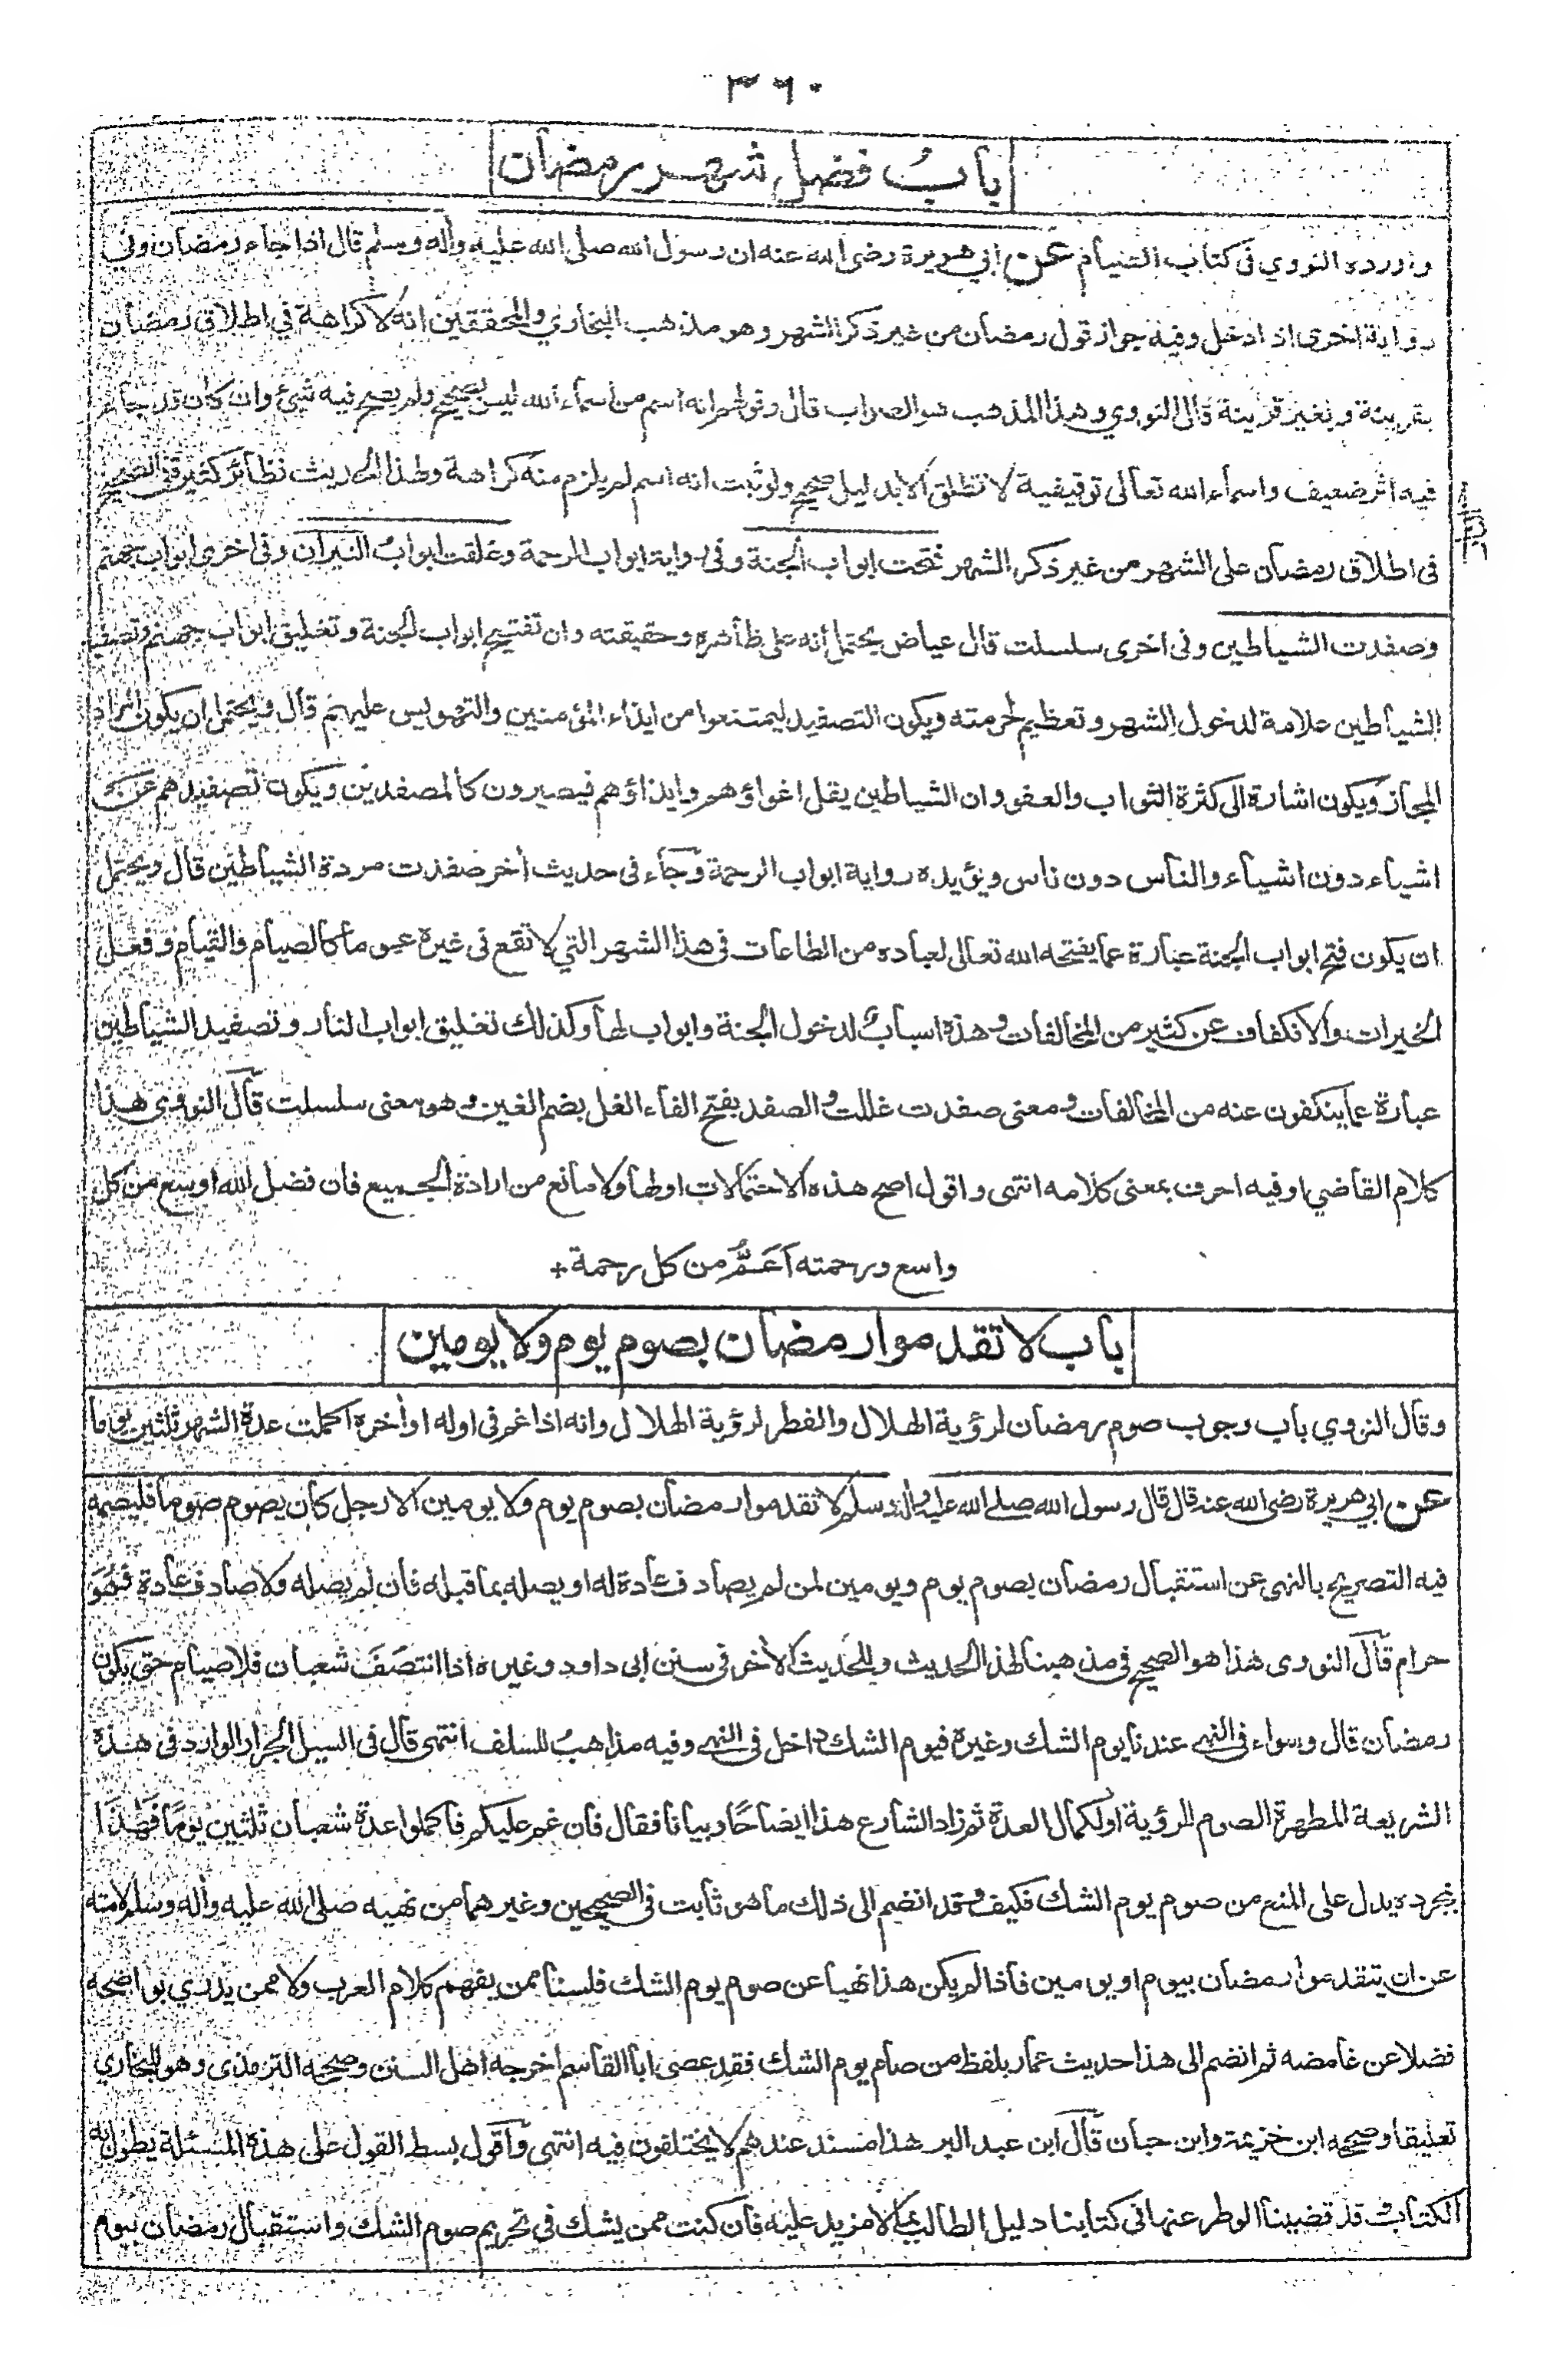 ٣٦٠
باب فضل شهر رمضان
واورده النووي فى كتاب الصيام عن ابي هريرة رضي الله عنه ان رسول الله صلى الله عليه وأله وسلم قال اذا جاء رمضان وفى
رواية اخرى اذا دخل وفيه جواز قول رمضان من غير ذكر الشهر وهو مذهب البخاري والمحققين انه لا كراهة في اطلاق رمضان
بقرينة وبغير قرينة قال النووي وهذا المذهب هو الصواب قال وقولهم انه اسم من اسماء الله ليس بصحيح ولم يصح فيه شيئ وان كان قد جاء
فيه اثر ضعيف واسماء الله تعالى توقيفية لا تطلق الا بدليل صحيح ولو ثبت انه اسم لم يلزم منه كراهة ولهذا الحديث نظائر كثيرة فى الصحيح
فى اطلاق رمضان على الشهر من غير ذكر الشهر فتحت ابواب الجنة وفى رواية ابواب الرحمة وغلقت ابواب النيران وفى اخرى ابواب جهنم
وصفدت الشياطين وفى اخرى سلسلت قال عياض يحتمل أنه على ظاهره وحقيقته وان تفتيح ابواب الجنة وتغليق ابواب جهنم وتصفيد
الشياطين علامة لدخول الشهر وتعظيم لحرمته ويكون التصفيد ليمتنعوا من ايذاء المؤمنين والتهويس عليهم قال ويحتمل ان يكون المراد
المجاز ويكون اشارة الى كثرة الثواب والعفو وان الشياطين يقل اغواؤهم وايذاؤهم فيصيرون كالمصفدين ويكون تصفيدهم عن
اشياء دون اشياء والناس دون ناس ويؤيده رواية ابواب الرحمة وجاء فى حديث أخر صفدت مردة الشياطين قال ويحتمل
ان يكون فتح ابواب الجنة عبارة عما يفتحه الله تعالى لعباده من الطاعات فى هذا الشهر التي لا تقع فى غيره عموما كالصيام والقيام وفعل
الخيرات والانكفاف عن كثير من المخالفات وهذه اسباب لدخول الجنة وابواب لها وكذلك تغليق ابواب النار وتصفيد الشياطين
عبارة عما ينكفون عنه من المخالفات ومعنى صفدت غللت والصفد بفتح الفاء الغل بضم الغين وهو معنى سلسلت قال النووي هذا
كلام القاضي او فيه احرف بمعنى كلامه انتهى واقول اصح هذه الاحتمالات اولها ولا مانع من ارادة الجميع فان فضل الله اوسع من كل
واسع ورحمته اَعَمُّ من كل رحمة +
باب لا تقدموا رمضان بصوم يوم ولا يومين
وقال النووي باب وجوب صوم رمضان لرؤية الهلال والفطر لرؤية الهلال وانه اذا غم فى اوله او أخره اكملت عدة الشهر ثلثين يوما
عن ابي هريرة رضي الله عنه قال قال رسول الله صلے الله عليه وأله وسلم لا تقدموا رمضان بصوم يوم ولا يومين الا رجل كان يصوم صوما فليصمه
فيه التصريح بالنهى عن استقبال رمضان بصوم يوم ويومين لمن لم يصادف عادة له او يصله بما قبله فان لم يصله ولا صادف عادة فهو
حرام قال النووى هذا هو الصحيح فى مذهبنا لهذا الحديث وللحديث الأخر فى سنن ابى داود وغيره اذا انتصف شعبان فلا صيام حتى يكون
رمضان قال وسواء فى النهي عندنا يوم الشك وغيره فيوم الشك داخل فى النهي وفيه مذاهب للسلف انتهى قال فى السيل الجرار الوارد فى هذه
الشريعة المطهرة الصوم للرؤية او لكمال العدة ثم زاد الشارع هذا ايضاحًا وبيانا فقال فان غم عليكم فأكملوا عدة شعبان ثلثين يومًا فهذا
بمجرده يدل على المنع من صوم يوم الشك فكيف وقد انضم الى ذلك ما هو ثابت فى الصحيحين وغيرهما من نهيه صلى الله عليه وأله وسلم لامته
عن ان يتقدموا رمضان بيوم او يومين فاذا لم يكن هذا نهيا عن صوم يوم الشك فلسنا ممن يفهم كلام العرب ولا ممن يدري بواضحه
فضلا عن غامضه ثم انضم الى هذا حديث عمار بلفظ من صام يوم الشك فقد عصى ابا القاسم اخرجه اهل السنن وصححه الترمذى وهو للبخاري
تعليقا وصححه ابن خزيمة وابن حبان قال ابن عبد البر هذا مسند عندهم لا يختلفون فيه انتهى وأقول بسط القول على هذه المسئلة يطول به
الكتاب وقد قضينا الوطر عنها فى كتابنا دليل الطالب بما لا مزيد عليه فان كنت ممن يشك فى تحريم صوم الشك واستقبال رمضان بيوم